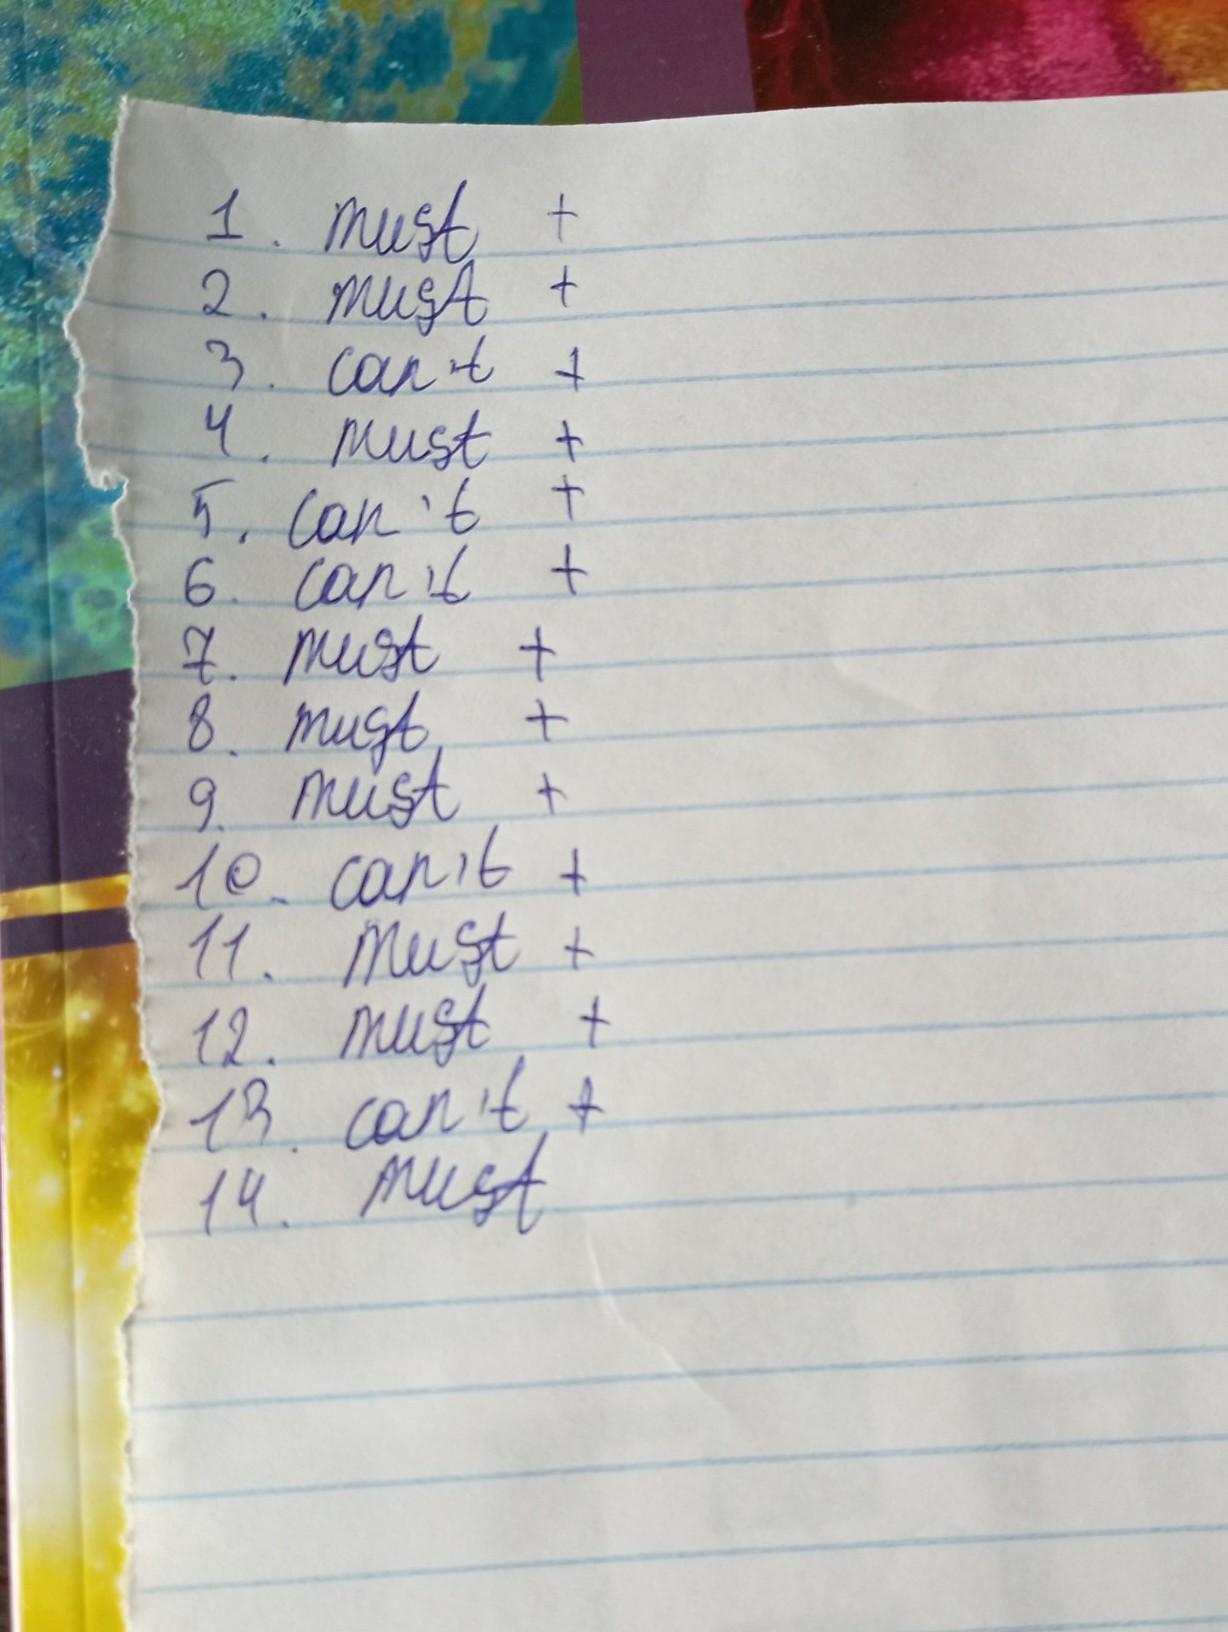 1. must +
2. must +
3. can't +
4. must +
5. can't +
6. can't +
7. must +
8. must +
9. must +
10. can't +
11. must +
12. must +
13. can't +
14. must